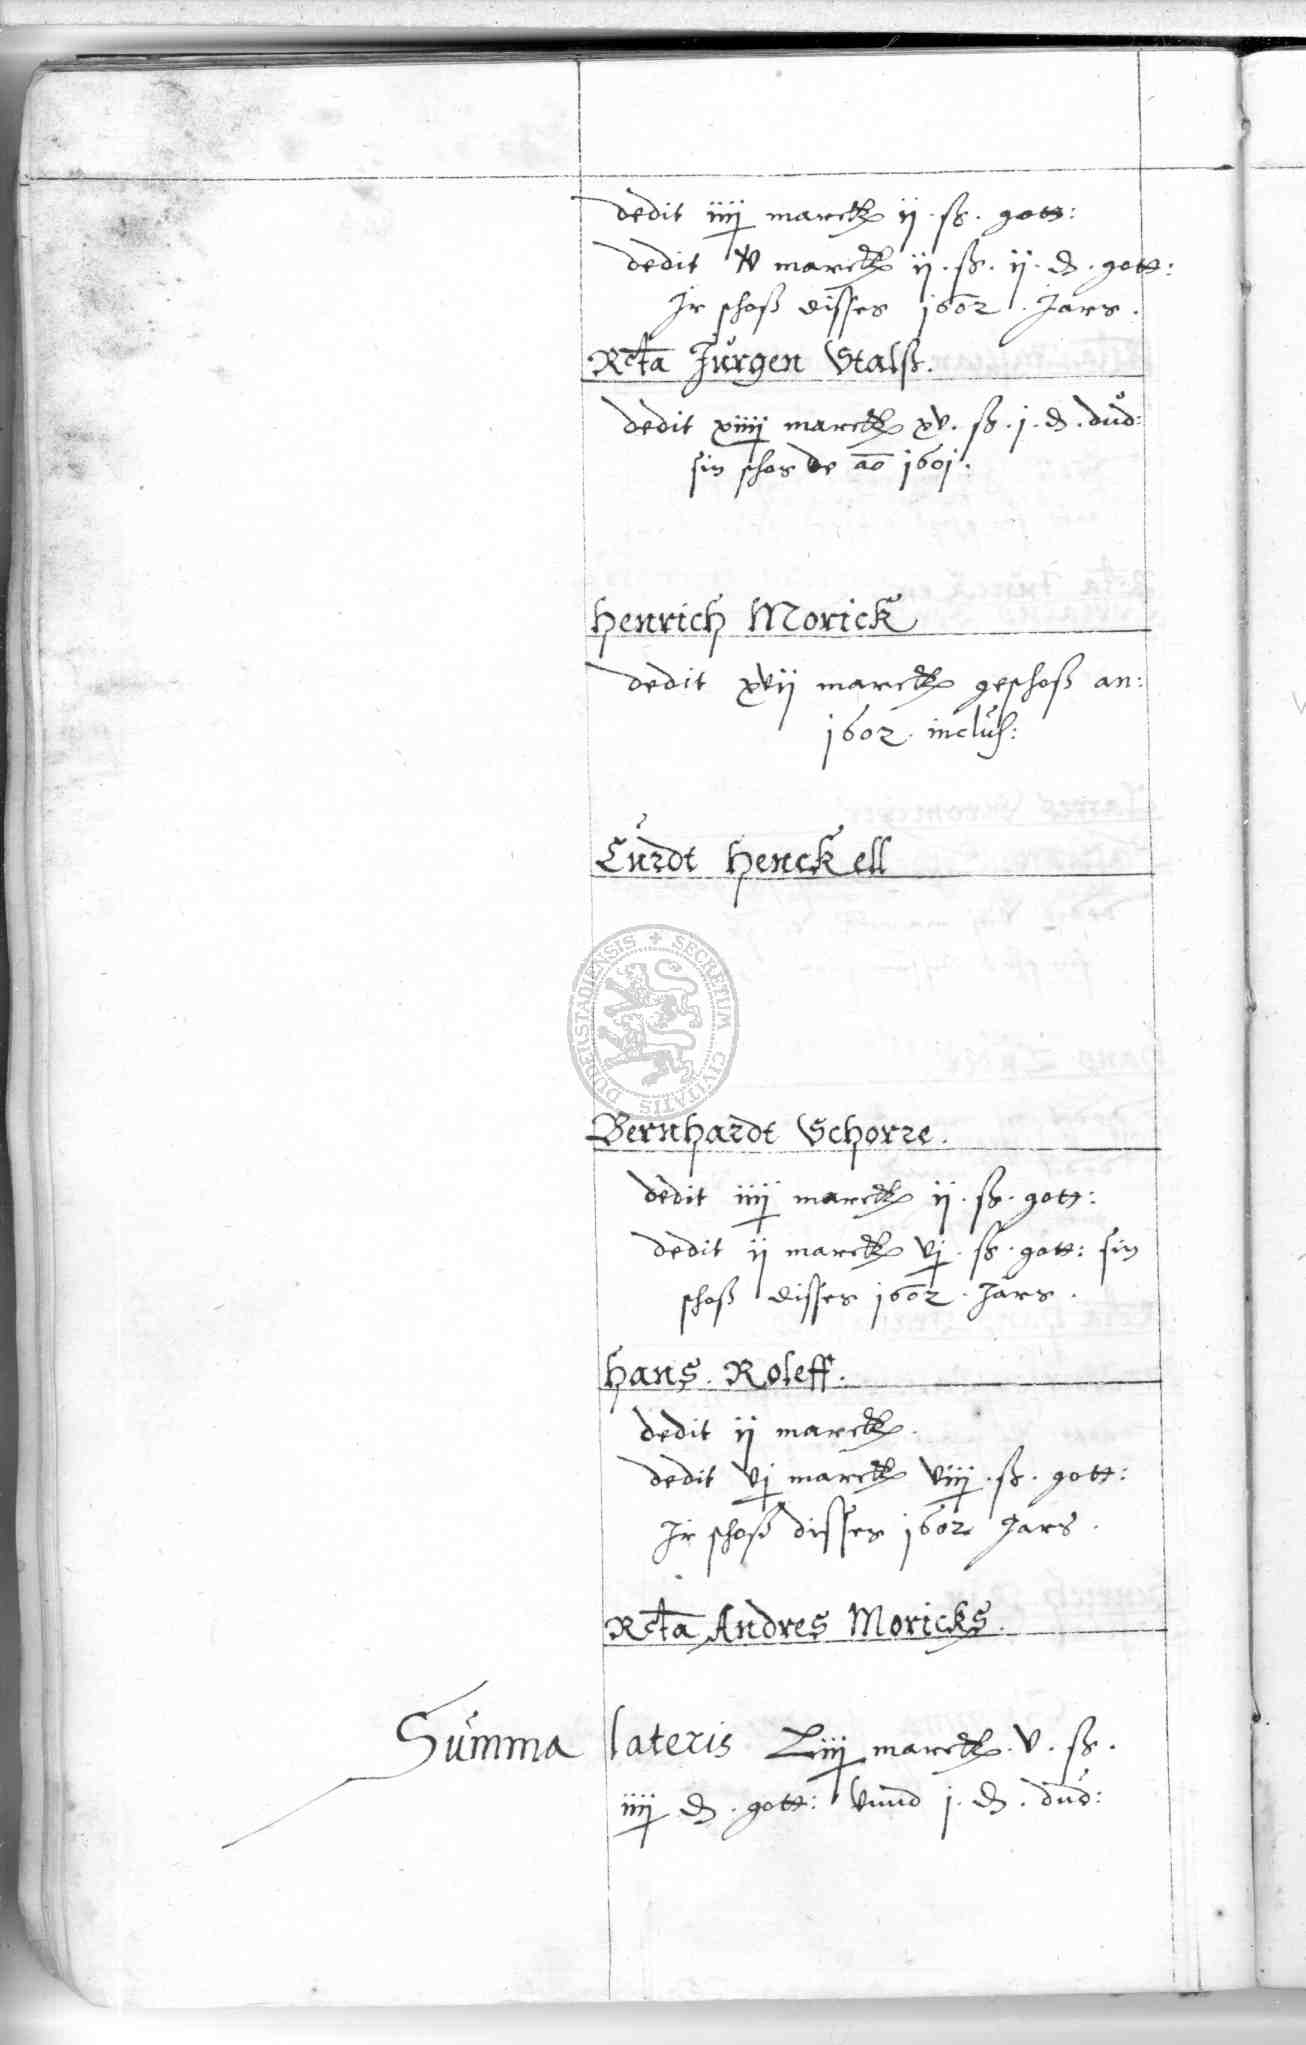 dedit iiij marck ij. ß. gott:
dedit v marck ij. ß. ij. ₰. gott:
Ir schoß disses 1602. Jars.
Rcta Jürgen Stalß.
dedit xiiij marck xv. ß. j. ₰. dud:
sin schos de ao 1601.
Henrich Morick
dedit xvij marck geschoß an:
1602. inclus:
Curdt Henckell
SECRETUM CIVITATIS DUDERSTADIENSIS
Bernhardt Schorre.
dedit iiij marck ij. ß. gott:
dedit ij marck vj. ß. gott: sin
schoß disses 1602. Jars.
Hans. Roleff.
dedit ij marck.
dedit vj marck viij. ß. gott:
Ir schoß disses 1602 Jars.
Rcta Andres Moricks.
Summa lateris Liij marck. v. ß.
iiij ₰. gott: vnnd j. ₰. dud: